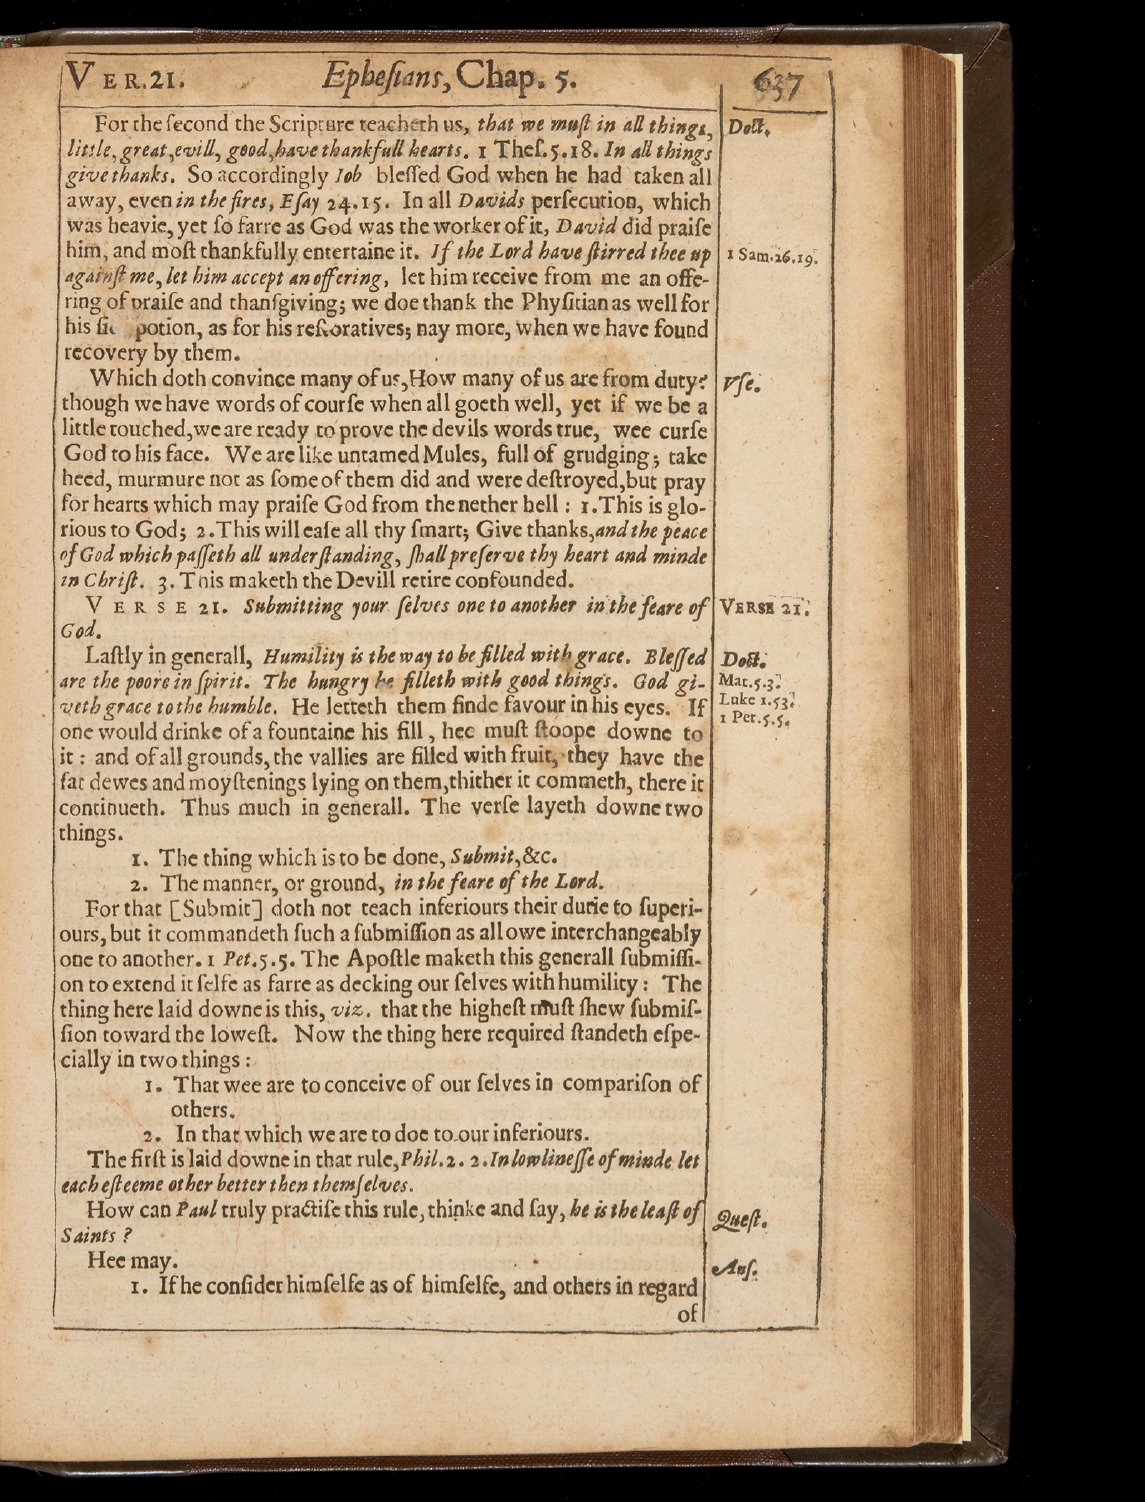 VER.21.
Epheſians, Chap. 5.
637
For the ſecond the Scripture teacheth us, that we muſt in all things,
Doct.
little, great, evill, good, have thankfull hearts. 1 Theſ. 5.18. In all things
give thanks. So accordingly Iob bleſſed God when he had taken all
away, even in the fires, Eſay 24.15. In all Davids perſecution, which
was heavie, yet ſo farre as God was the worker of it, David did praiſe
him, and moſt thankfully entertaine it. If the Lord have ſtirred thee up
1 Sam. 26.19.
againſt me, let him accept an offering, let him receive from me an offe-
ring of praiſe and thanſgiving; we doe thank the Phyſitian as well for
his potion, as for his reſtoratives; nay more, when we have found
recovery by them.
Which doth convince many of us, How many of us are from duty?
Vſe.
though we have words of courſe when all goeth well, yet if we be a
little touched, we are ready to prove the devils words true, wee curſe
God to his face. We are like untamed Mules, full of grudging; take
heed, murmure not as ſome of them did and were deſtroyed, but pray
for hearts which may praiſe God from the nether hell : 1. This is glo-
rious to God; 2. This will eaſe all thy ſmart; Give thanks, and the peace
of God which paſſeth all underſtanding, ſhall preſerve thy heart and minde
in Chriſt. 3. This maketh the Devill retire confounded.
VERSE 21. Submitting your ſelves one to another in the feare of
VERSE 21.
God.
Laſtly in generall, Humility is the way to be filled with grace. Bleſſed
Doct.
are the poore in ſpirit. The hungry he filleth with good things. God gi-
Mat. 5.3.
veth grace to the humble. He letteth them finde favour in his eyes. If
Luke 1.53.
one would drinke of a fountaine his fill, hee muſt ſtoope downe to
1 Pet. 5.5.
it : and of all grounds, the vallies are filled with fruit, they have the
fat dewes and moyſtenings lying on them, thither it commeth, there it
continueth. Thus much in generall. The verſe layeth downe two
things.
1. The thing which is to be done, Submit, &c.
2. The manner, or ground, in the feare of the Lord.
For that [Submit] doth not teach inferiours their dutie to ſuperi-
ours, but it commandeth ſuch a ſubmiſſion as all owe interchangeably
one to another. 1 Pet. 5.5. The Apoſtle maketh this generall ſubmiſſi-
on to extend it ſelfe as farre as decking our ſelves with humility : The
thing here laid downe is this, viz. that the higheſt muſt ſhew ſubmiſ-
ſion toward the loweſt. Now the thing here required ſtandeth eſpe-
cially in two things :
1. That wee are to conceive of our ſelves in compariſon of
others.
2. In that which we are to doe to our inferiours.
The firſt is laid downe in that rule, Phil. 2. 2. In lowlineſſe of minde let
each eſteeme other better then themſelves.
How can Paul truly practiſe this rule, thinke and ſay, he is the leaſt of
Queſt.
Saints ?
Hee may.
Anſ.
1. If he conſider himſelfe as of himſelfe, and others in regard
of